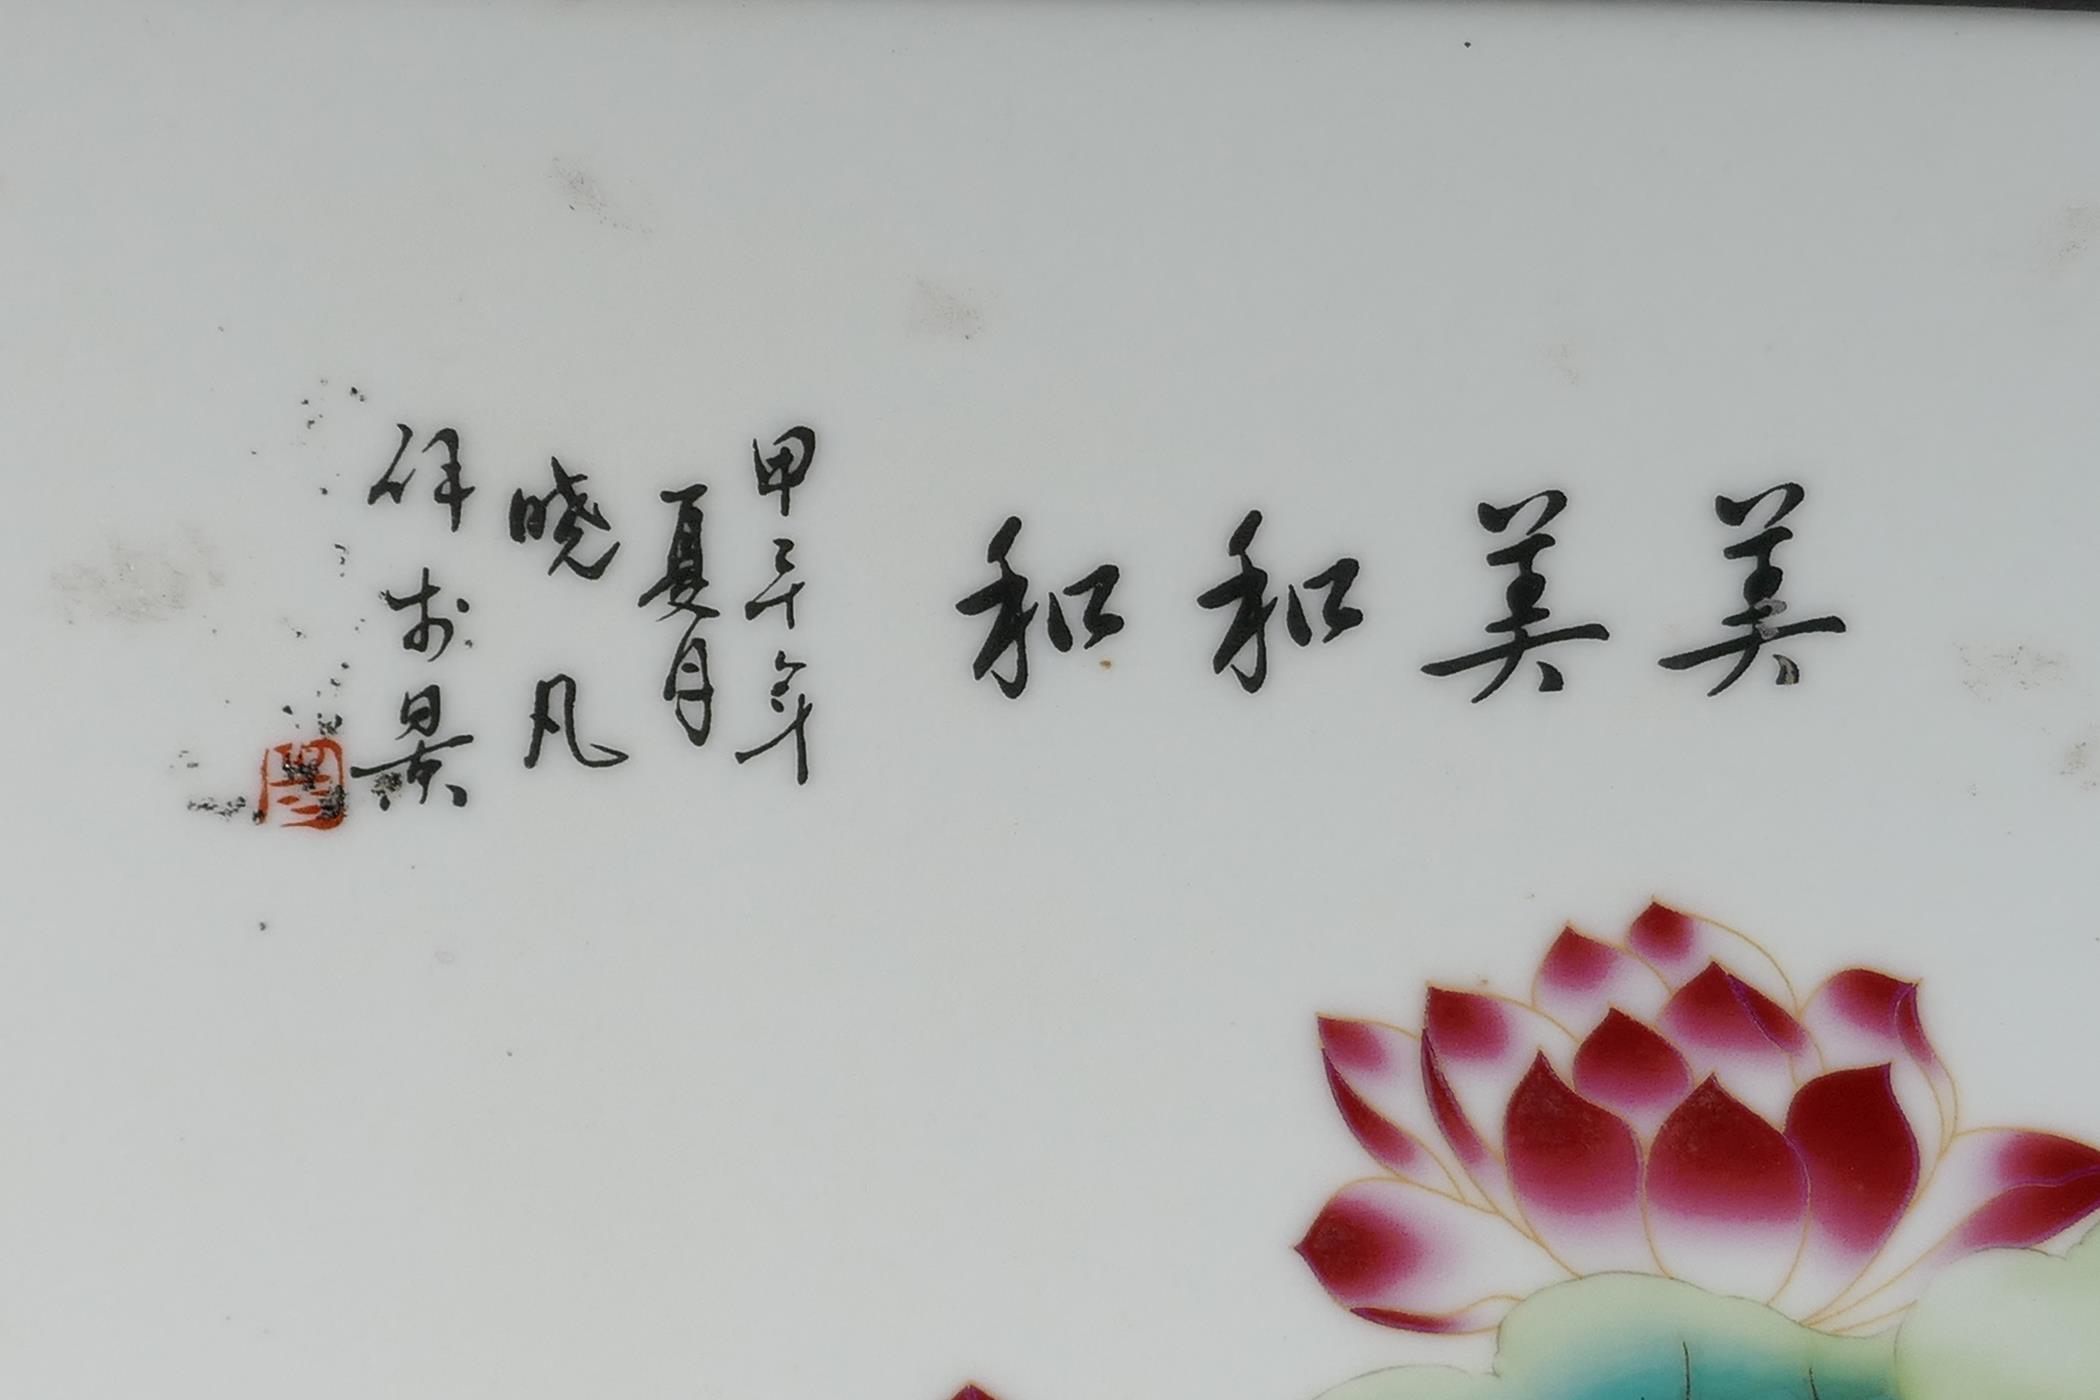 美美和和
甲三十年
夏月
晓凡
作於景